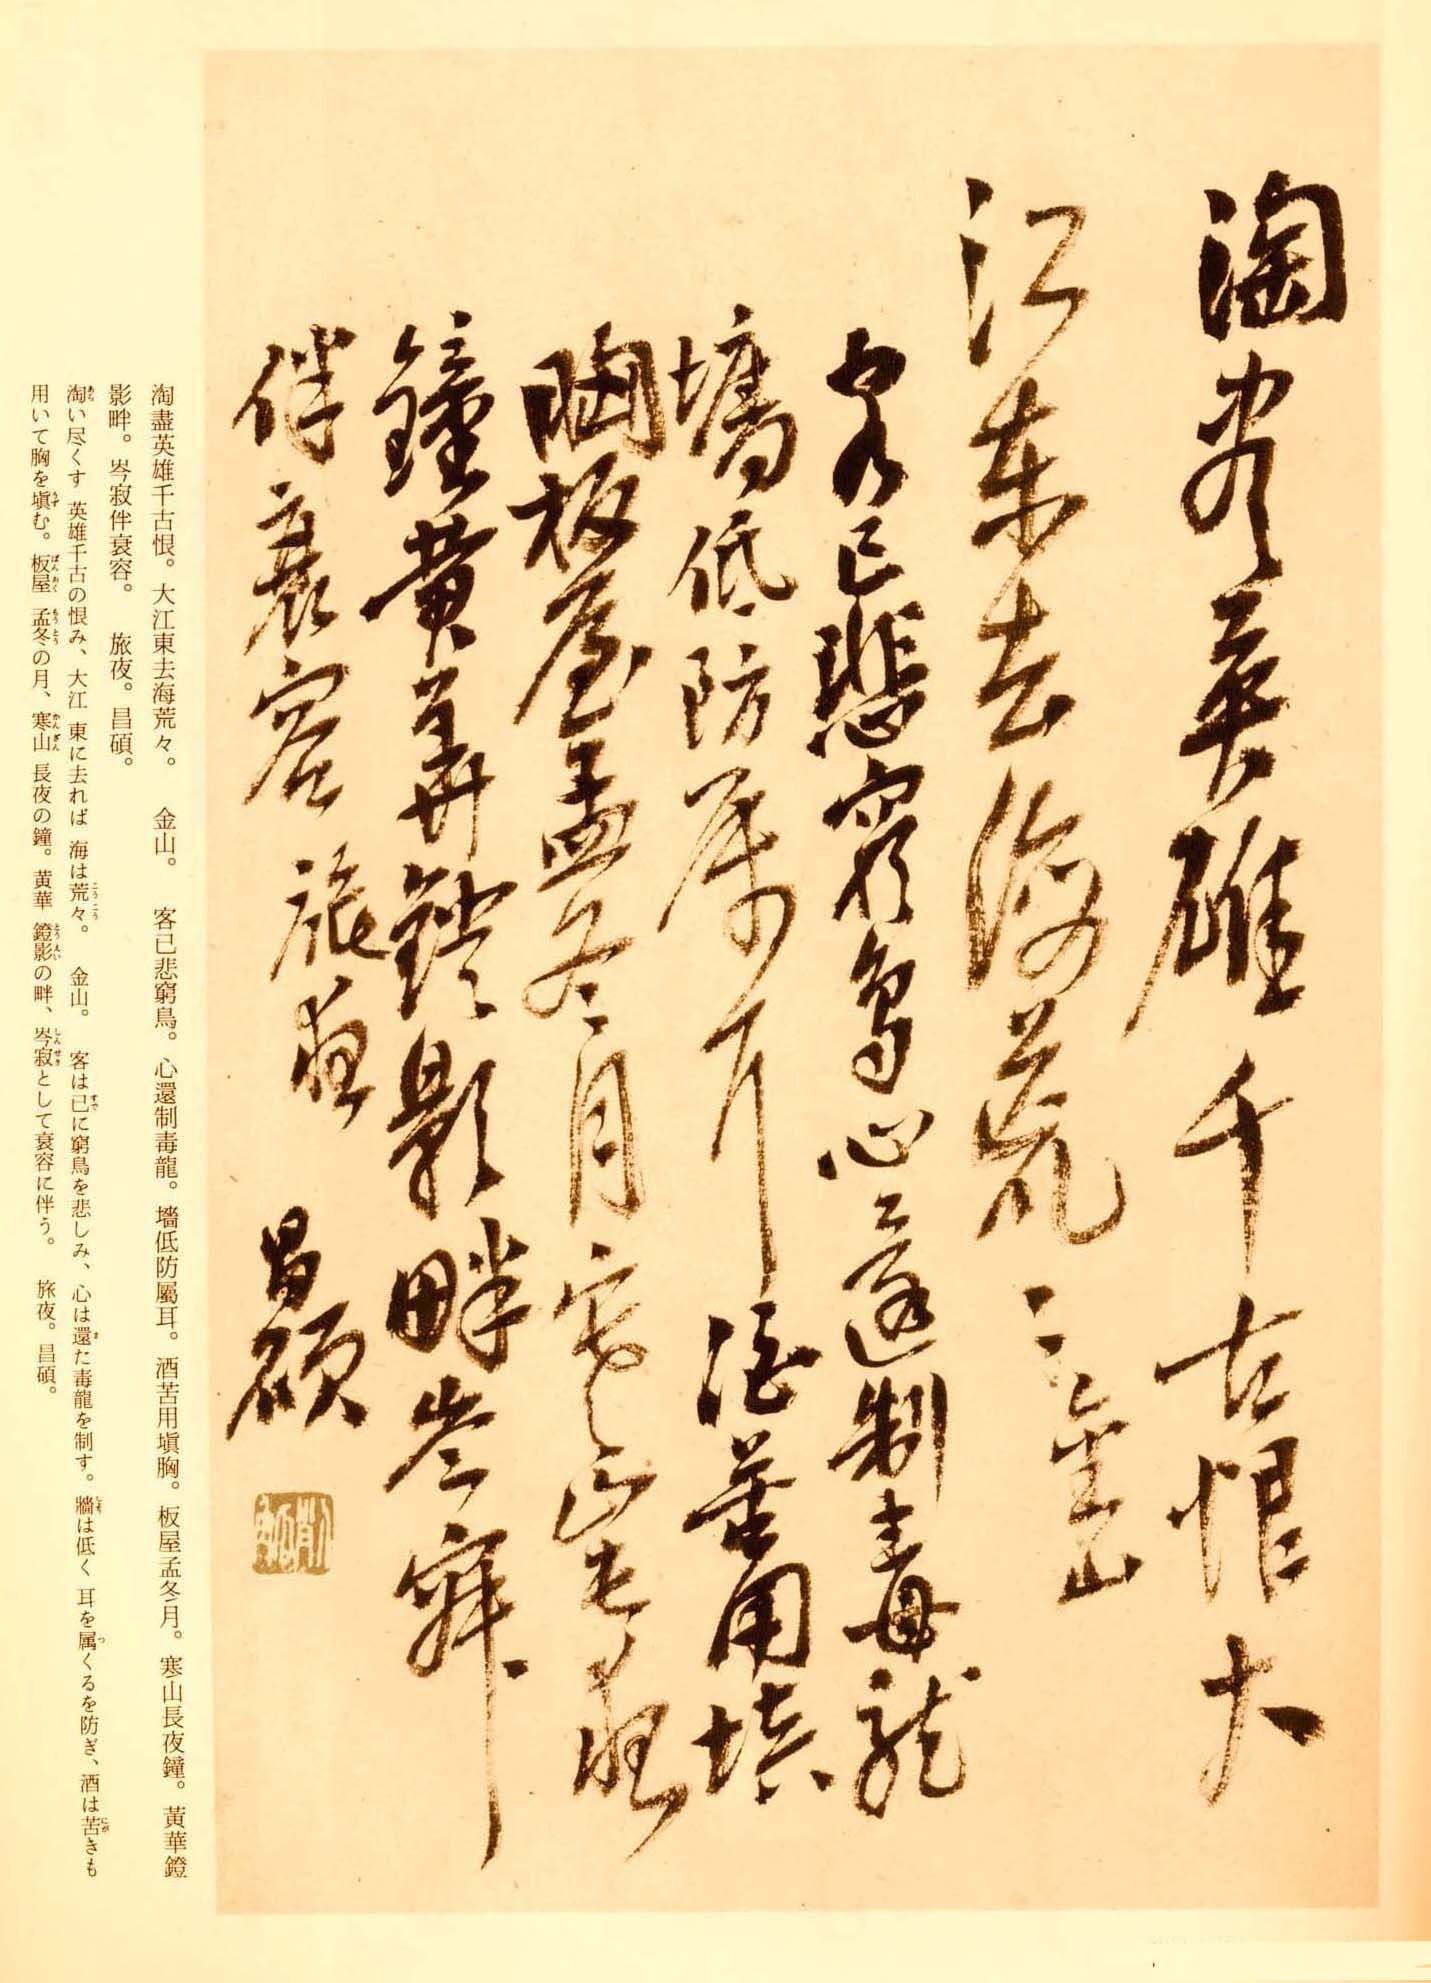 淘盡英雄千古恨大
江東去海荒々金山
客已悲窮鳥心還制毒龍
墻低防属耳酒苦用填
胸板屋孟冬月寒山長夜
鐘黄華鐙影畔岑寂
伴衰容旅夜 昌碩
淘盡英雄千古恨。大江東去海荒々。　金山。　客已悲窮鳥。心還制毒龍。墻低防屬耳。酒苦用塡胸。板屋孟冬月。寒山長夜鐘。黃華鐙
影畔。岑寂伴衰容。　旅夜。昌碩。
淘い尽くす 英雄千古の恨み、大江 東に去れば 海は荒々。　金山。　客は已に窮鳥を悲しみ、心は還た毒龍を制す。牆は低く 耳を属くるを防ぎ、酒は苦きも
用いて胸を塡む。板屋 孟冬の月、寒山 長夜の鐘。黄華 鐙影の畔、岑寂として衰容に伴う。　旅夜。昌碩。